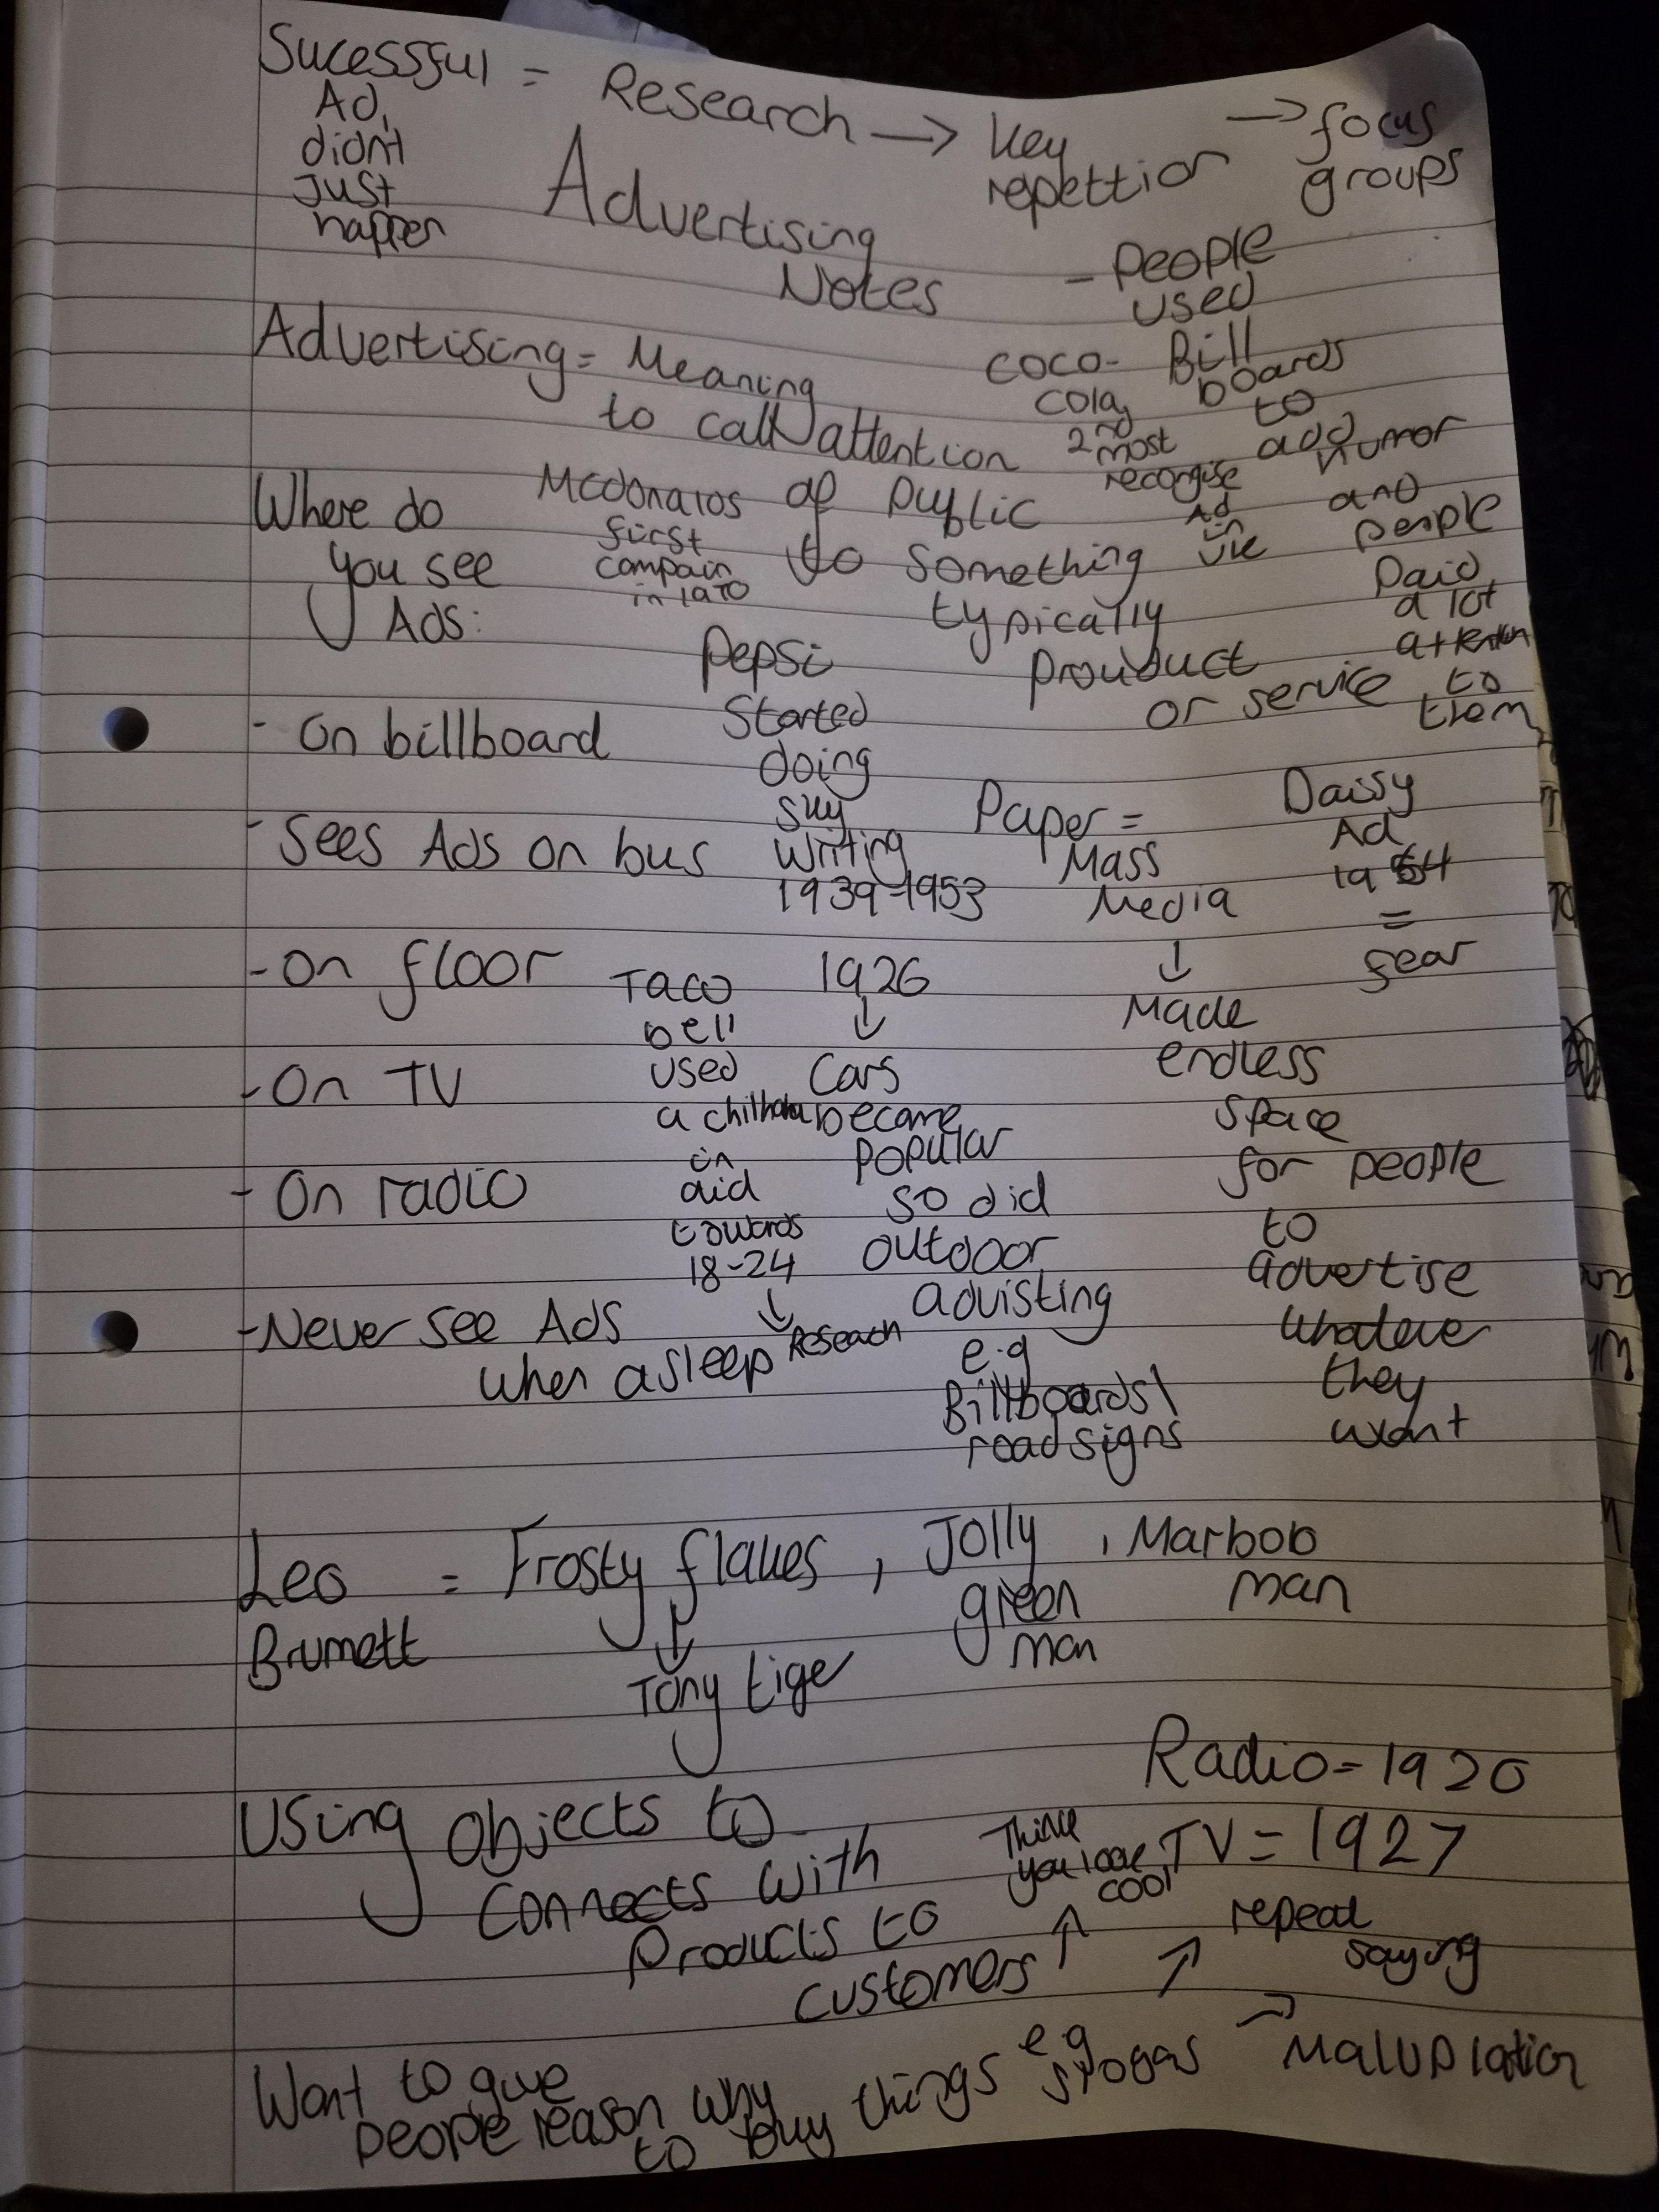 Sucessful = Research → Key → focus
Ad,
didn't
Just
happen
repettion
groups
Advertising
Notes
- People
used
Bill
boards
to
add
humor
and
people
Paid
a lot
attention
to
them
Advertising = Meaning
to call attention
of public
to something
typically
prouduct
or service
coco-
cola
2nd
most
recorgise
Ad
in
Mcdonalds
first
compain
in 1970
Where do
you see
Ads:
- On billboard
- Sees Ads on bus
- On floor
- On TV
- On radio
- Never see Ads
when asleep
Pepsi
Started
doing
sky
writing
1939-1953
Paper =
Mass
Media
↓
Made
endless
space
for people
to
advertise
whateve
they
want
Daisy
Ad
1964
=
fear
Taco
bell
used
a
in
aid
towards
18-24
↓
Reseach
1926
↓
Cars
became
popular
so did
outdoor
advisting
e.g
Billboards\
road signs
Leo = Frosty flakes, Jolly, Marbob
Brumett
↓
Tony tige
green
man
man
Radio = 1920
TV = 1927
Using objects to
connects with
Products to
customers
↑
Think
you look
cool
↗
repeat
saying
Want to give
people reason why
to buy things e.g
slogas → Maluplation